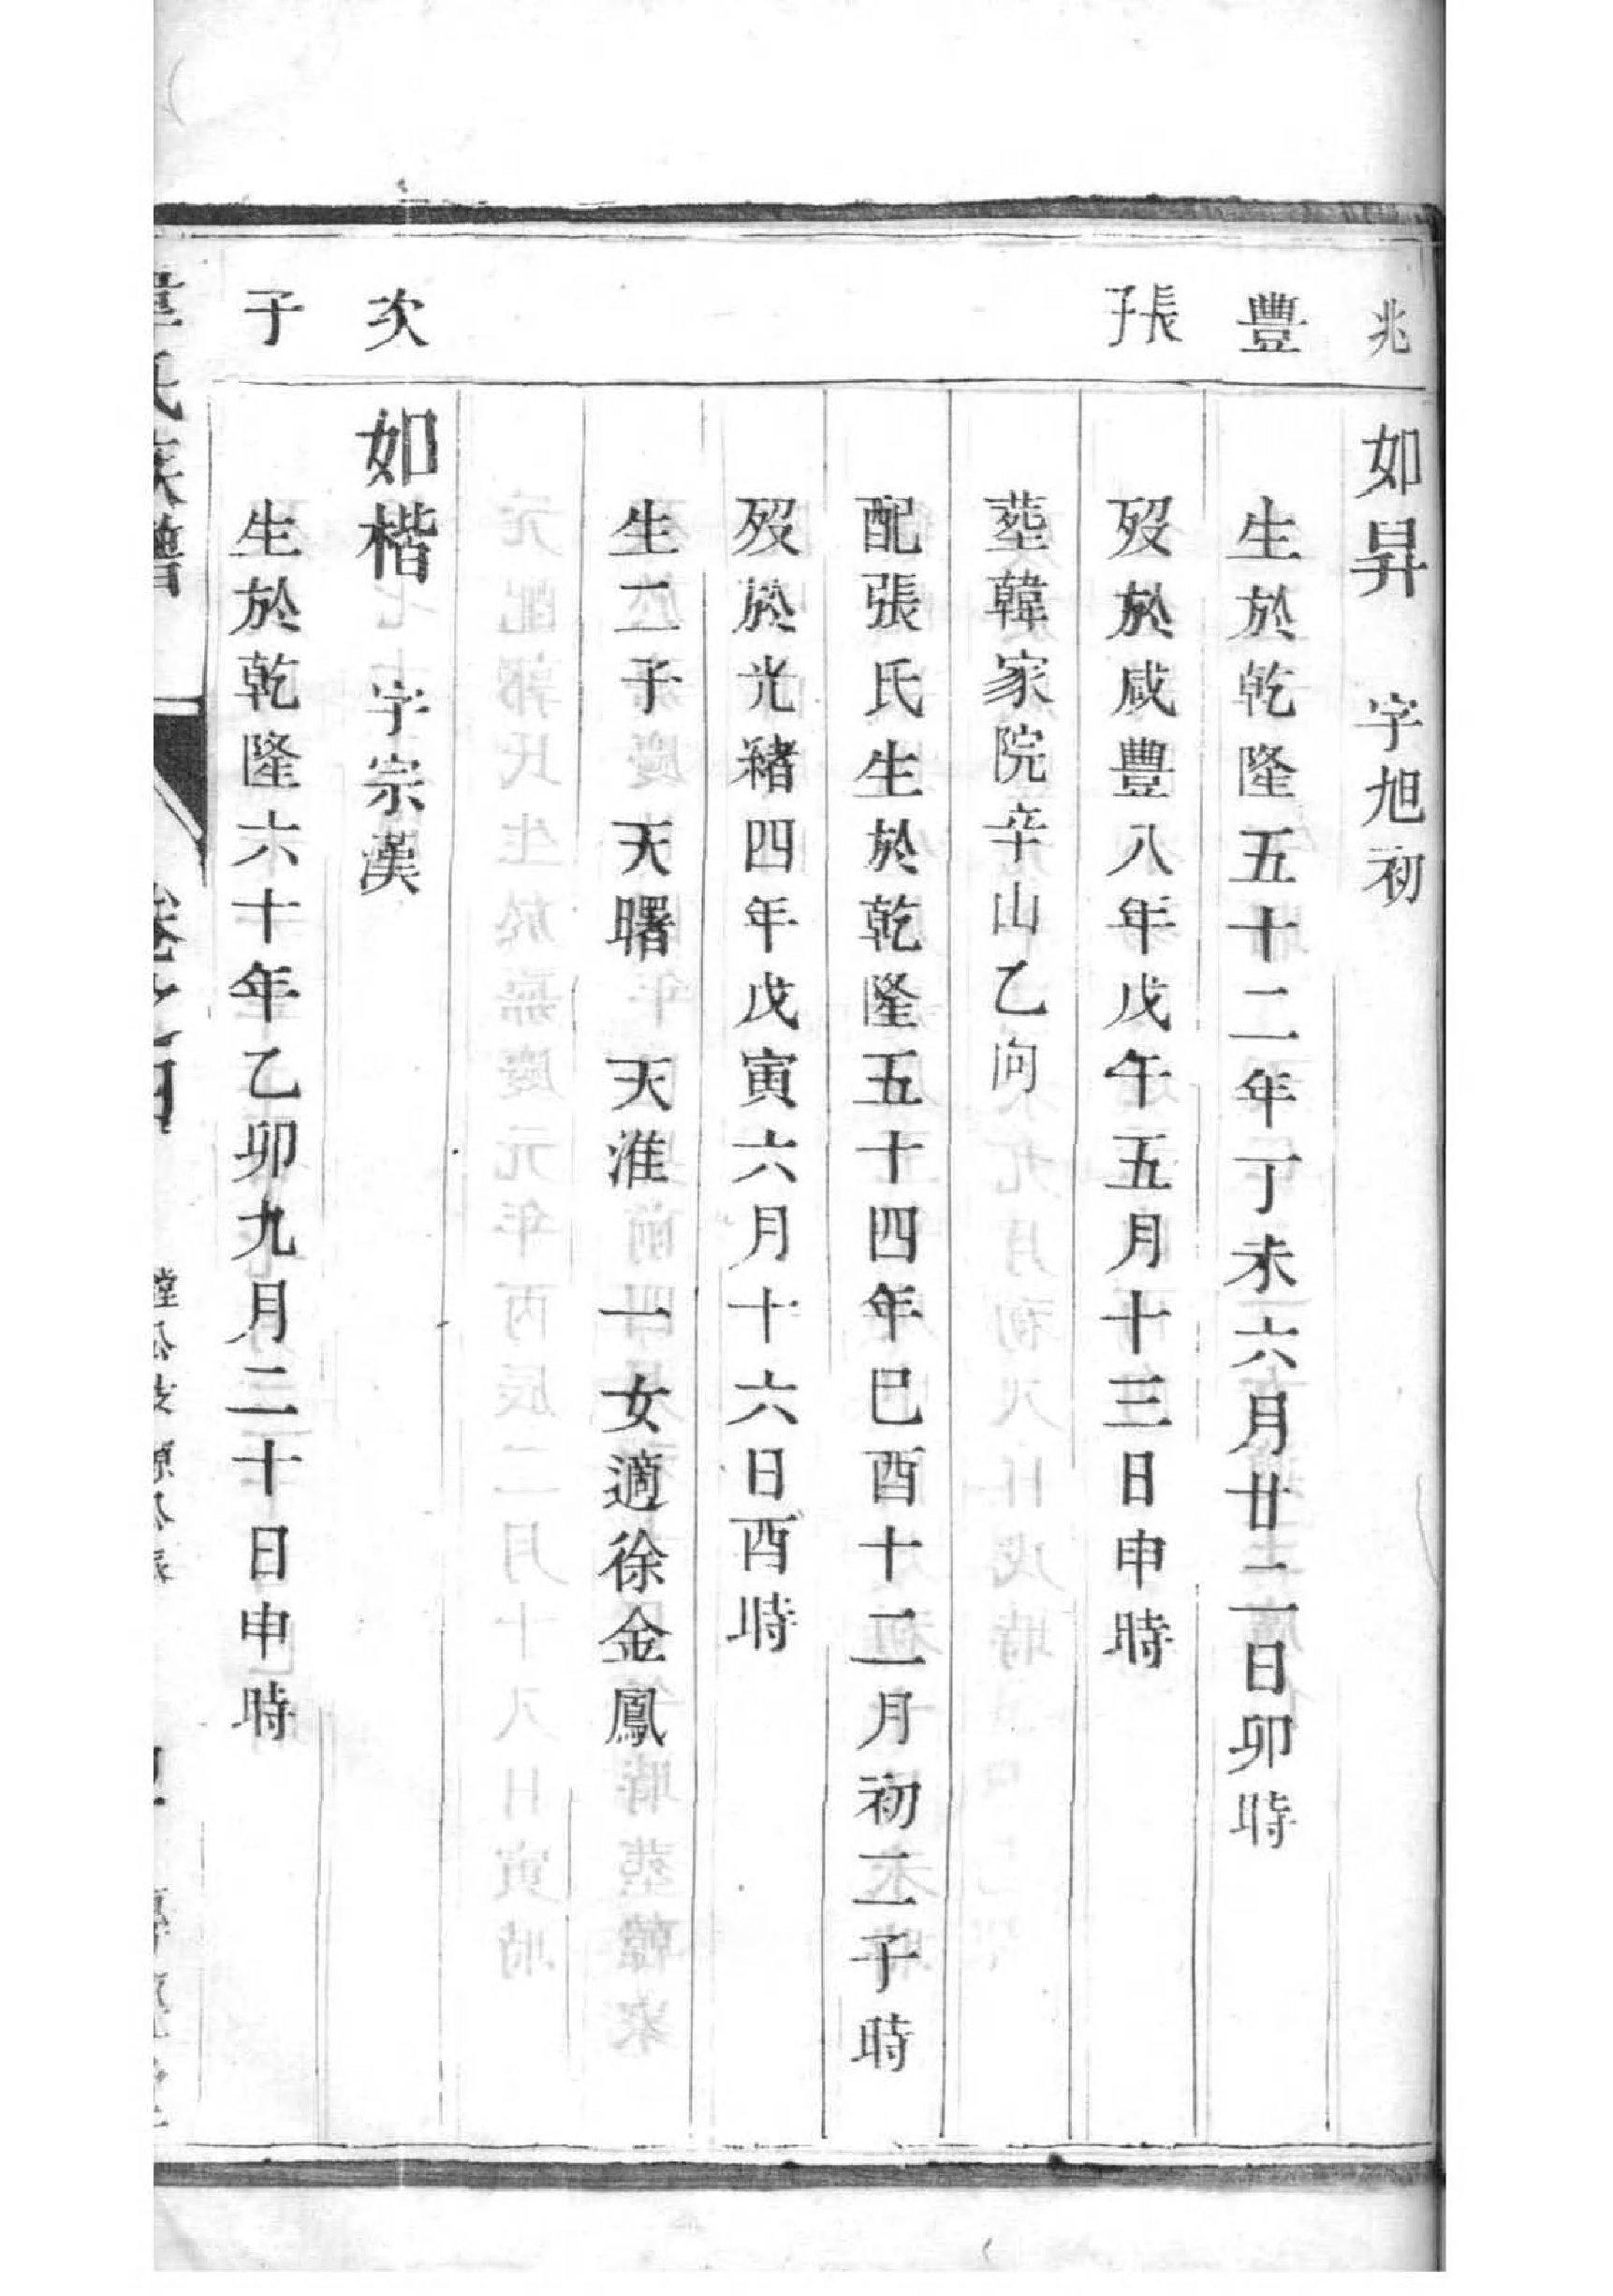 兆
如昇 字旭初
豐
生於乾隆五十二年丁未六月廿二日卯時
長子
歿於咸豐八年戊午五月十三日申時
塟韓家院辛山乙向
配張氏生於乾隆五十四年巳酉十二月初二子時
歿於光緒四年戊寅六月十六日酉時
生二子 天曙 天淮 一女適徐金鳳
次
如楷 字宗漢
子
生於乾隆六十年乙卯九月二十日申時
氏族譜
卷之四